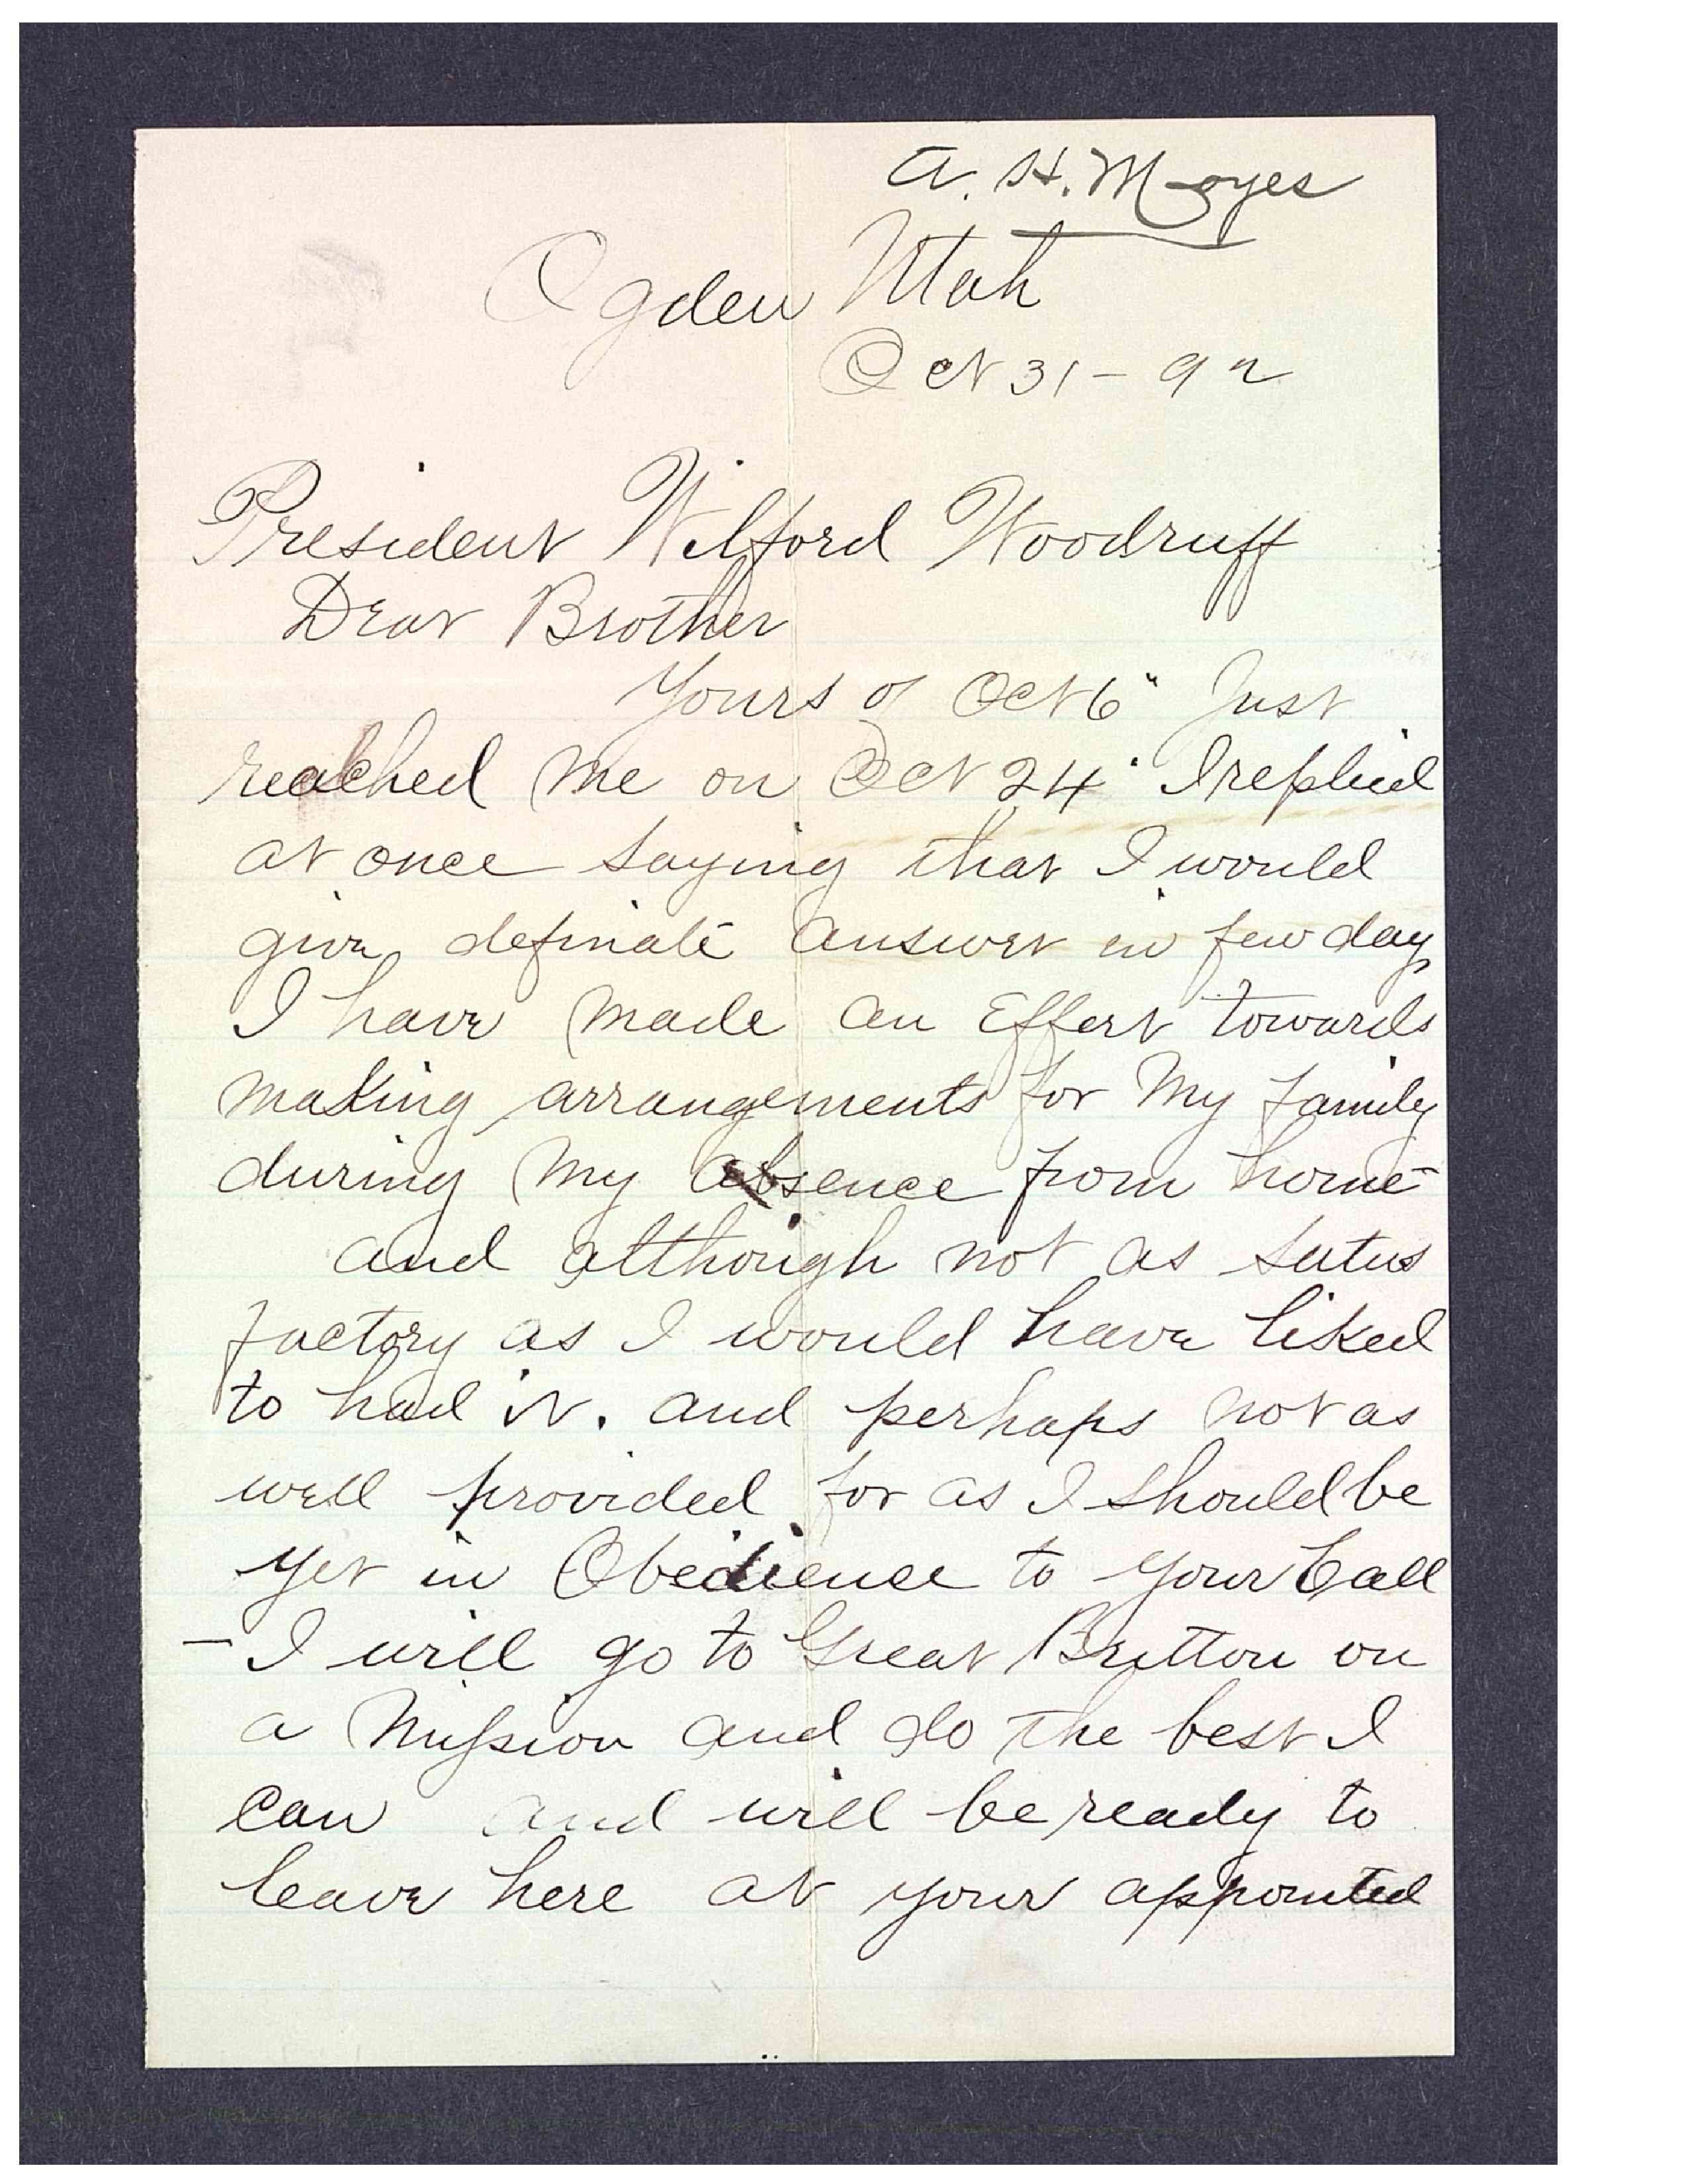 A. H. Moyes
Ogden Utah
Oct 31 - 92
President Wilford Woodruff
Dear Brother
Yours of Oct 6" Just
reached me on Oct 24" I replied
at once saying that I would
give definate answer in few days
I have made an Effert towards
making arrangements for My family
during My absence from home -
and although not as satus
factory as I would have liked
to had it. and perhaps not as
well provided for as I should be
yet in Obedience to your Call
- I will go to Great Britton on
a Mission and do the best I
can and will be ready to
leave here at your appointed